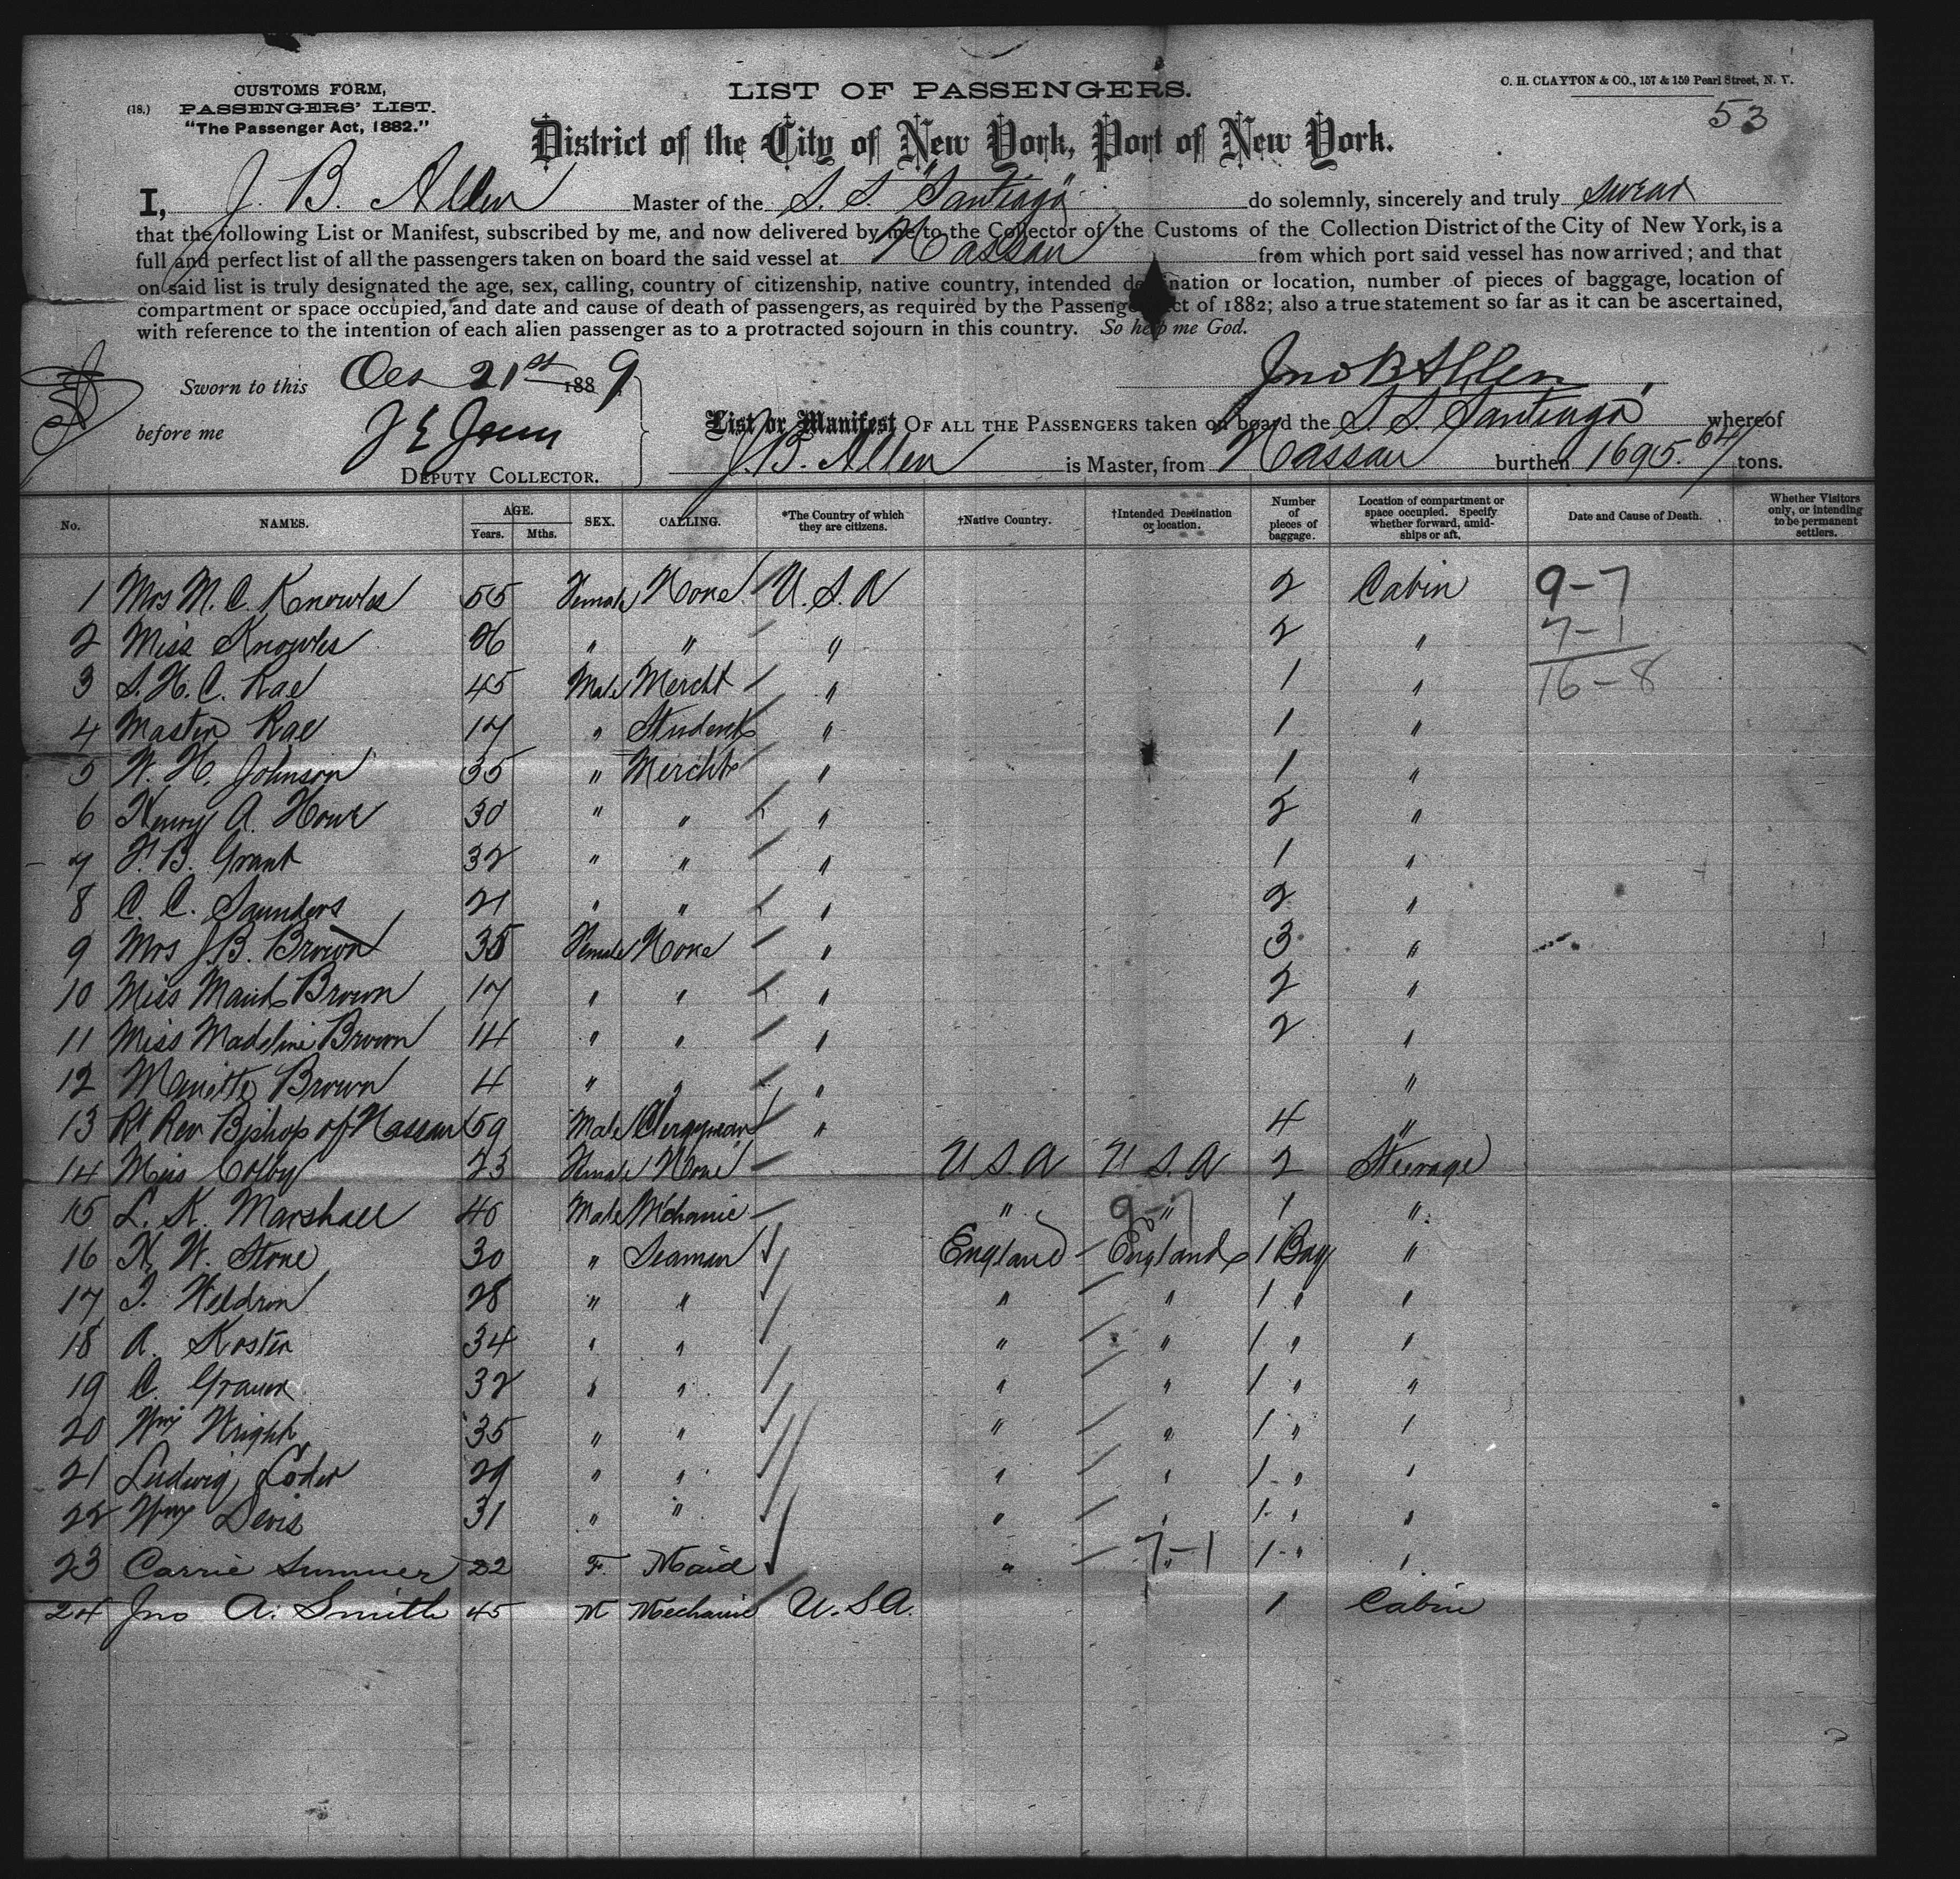 CUSTOMS FORM,
(18.) PASSENGERS' LIST.
"The Passenger Act, 1882."
LIST OF PASSENGERS.
C. H. CLAYTON & CO., 157 & 159 Pearl Street, N. Y.
53
District of the City of New York, Port of New York.
I, J. B. Allen Master of the S. S. "Santiago" do solemnly, sincerely and truly swear
that the following List or Manifest, subscribed by me, and now delivered by me to the Collector of the Customs of the Collection District of the City of New York, is a
full and perfect list of all the passengers taken on board the said vessel at Nassau from which port said vessel has now arrived; and that
on said list is truly designated the age, sex, calling, country of citizenship, native country, intended destination or location, number of pieces of baggage, location of
compartment or space occupied, and date and cause of death of passengers, as required by the Passenger Act of 1882; also a true statement so far as it can be ascertained,
with reference to the intention of each alien passenger as to a protracted sojourn in this country. So help me God.
Sworn to this 21st 1889
Jno B Allen
before me
DEPUTY COLLECTOR.
List or Manifest OF ALL THE PASSENGERS taken on board the S. S. Santiago whereof
J. B. Allen is Master, from Nassau burthen 1695.64/ tons.
No. NAMES. AGE. Years. Mths. SEX. CALLING. *The Country of which they are citizens. †Native Country. †Intended Destination or location. Number of pieces of baggage. Location of compartment or space occupied. Specify whether forward, amidships or aft. Date and Cause of Death. Whether Visitors only, or intending to be permanent settlers.
1 Mrs M. C. Knowles 55 Female None U. S. A 2 Cabin 9-7
2 Miss Knowles 26 " " " 2 " 7-1
3 S. H. C. Rae 45 Male Mercht " 1 " 16-8
4 Master Rae 17 " Student " 1 "
5 W. H. Johnson 35 " Mercht " 1 "
6 Henry A. Howe 30 " " " 2 "
7 F. B. Grant 32 " " " 1 "
8 C. C. Saunders 21 " " " 2 "
9 Mrs J. B. Brown 35 Female None " 3 "
10 Miss Maud Brown 17 " " " 2 "
11 Miss Madeline Brown 14 " " " 2 "
12 Brown 4 " " " "
13 Rt Rev Bishop of Nassau 59 Male Clergyman " 4 "
14 Miss Colby 23 Female None U S A U. S. A 2 Steerage
15 L. K. Marshall 40 Male Mchanic " 9-7 " 1 "
16 H. W. Stone 30 " Seaman England England 1 Bag "
17 J. Weldron 28 " " " " 1 " "
18 A. Koster 34 " " " " 1 " "
19 C. 32 " " " " 1 " "
20 Wm Wright 35 " " " " 1 " "
21 Ludwig Loder 29 " " " " 1 " "
22 Wm Devis 31 " " " " 1 " "
23 Carrie Sumner 22 F. Maid " 7-1 " 1 " "
24 Jno A. Smith 45 M Mechanic U. S A. 1 Cabin